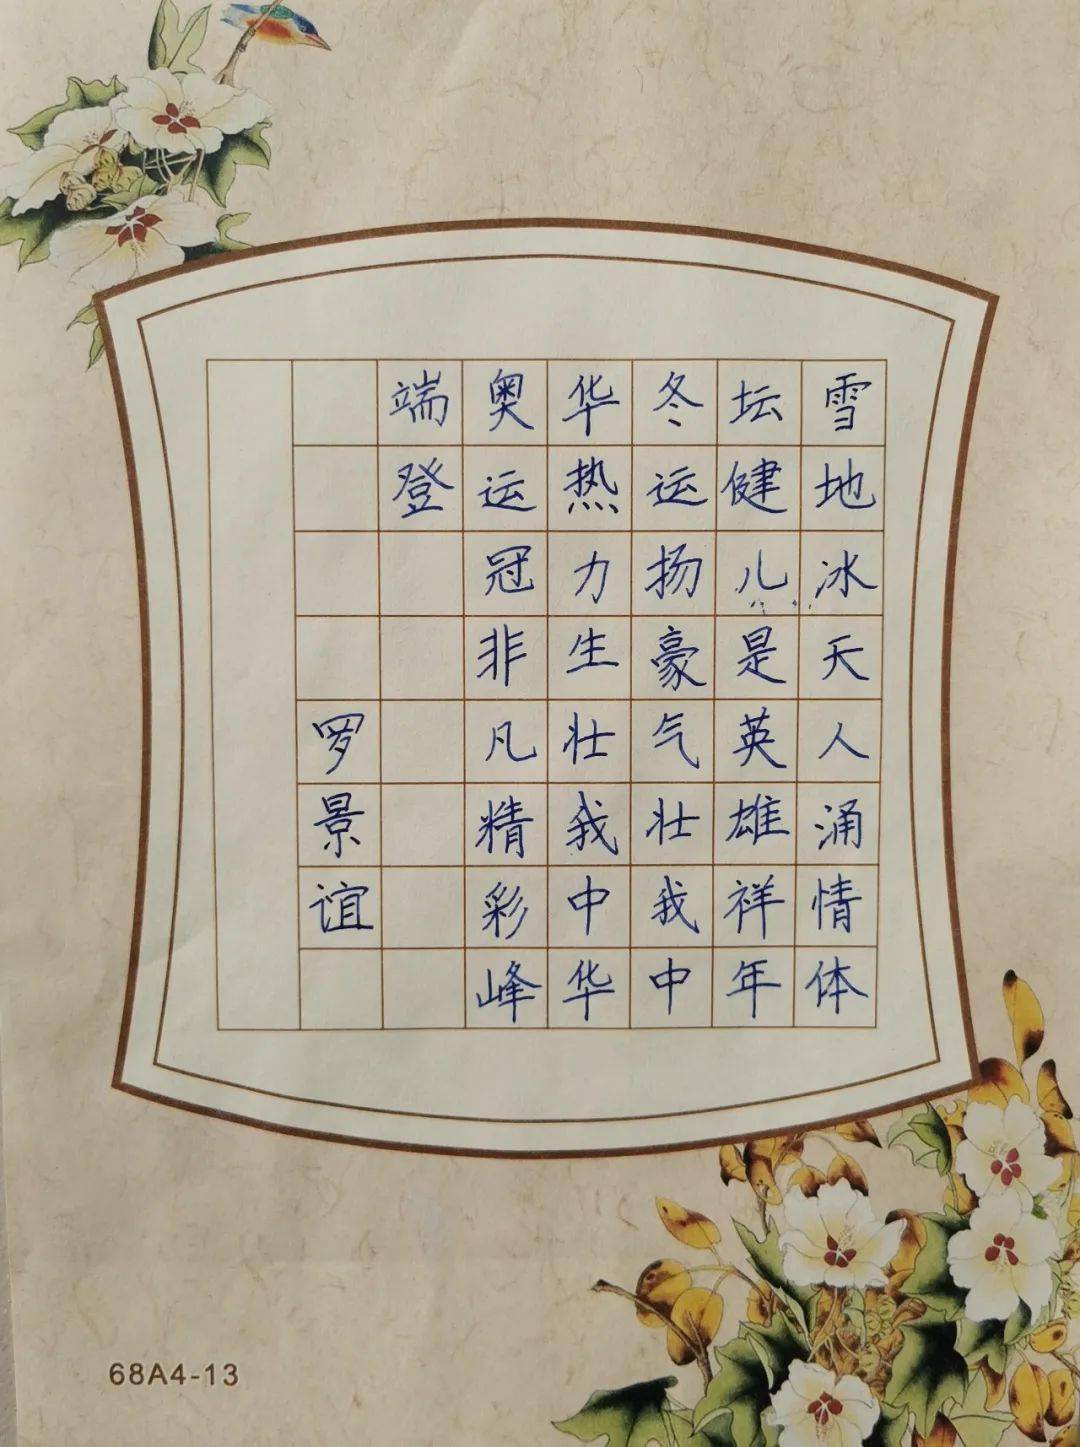 雪地冰天人涌情体
坛健儿是英雄祥年
冬运扬豪气壮我中
华热力生壮我中华
奥运冠非凡精彩峰
端登
罗景谊
68A4-13